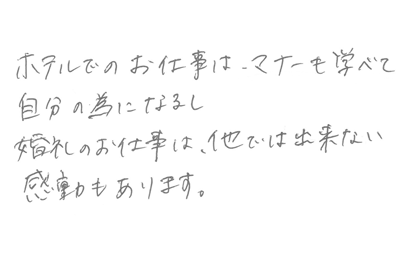 ホテルでのお仕事は、マナーも学べて
自分の為になるし
婚礼のお仕事は、他では出来ない
感動もあります。